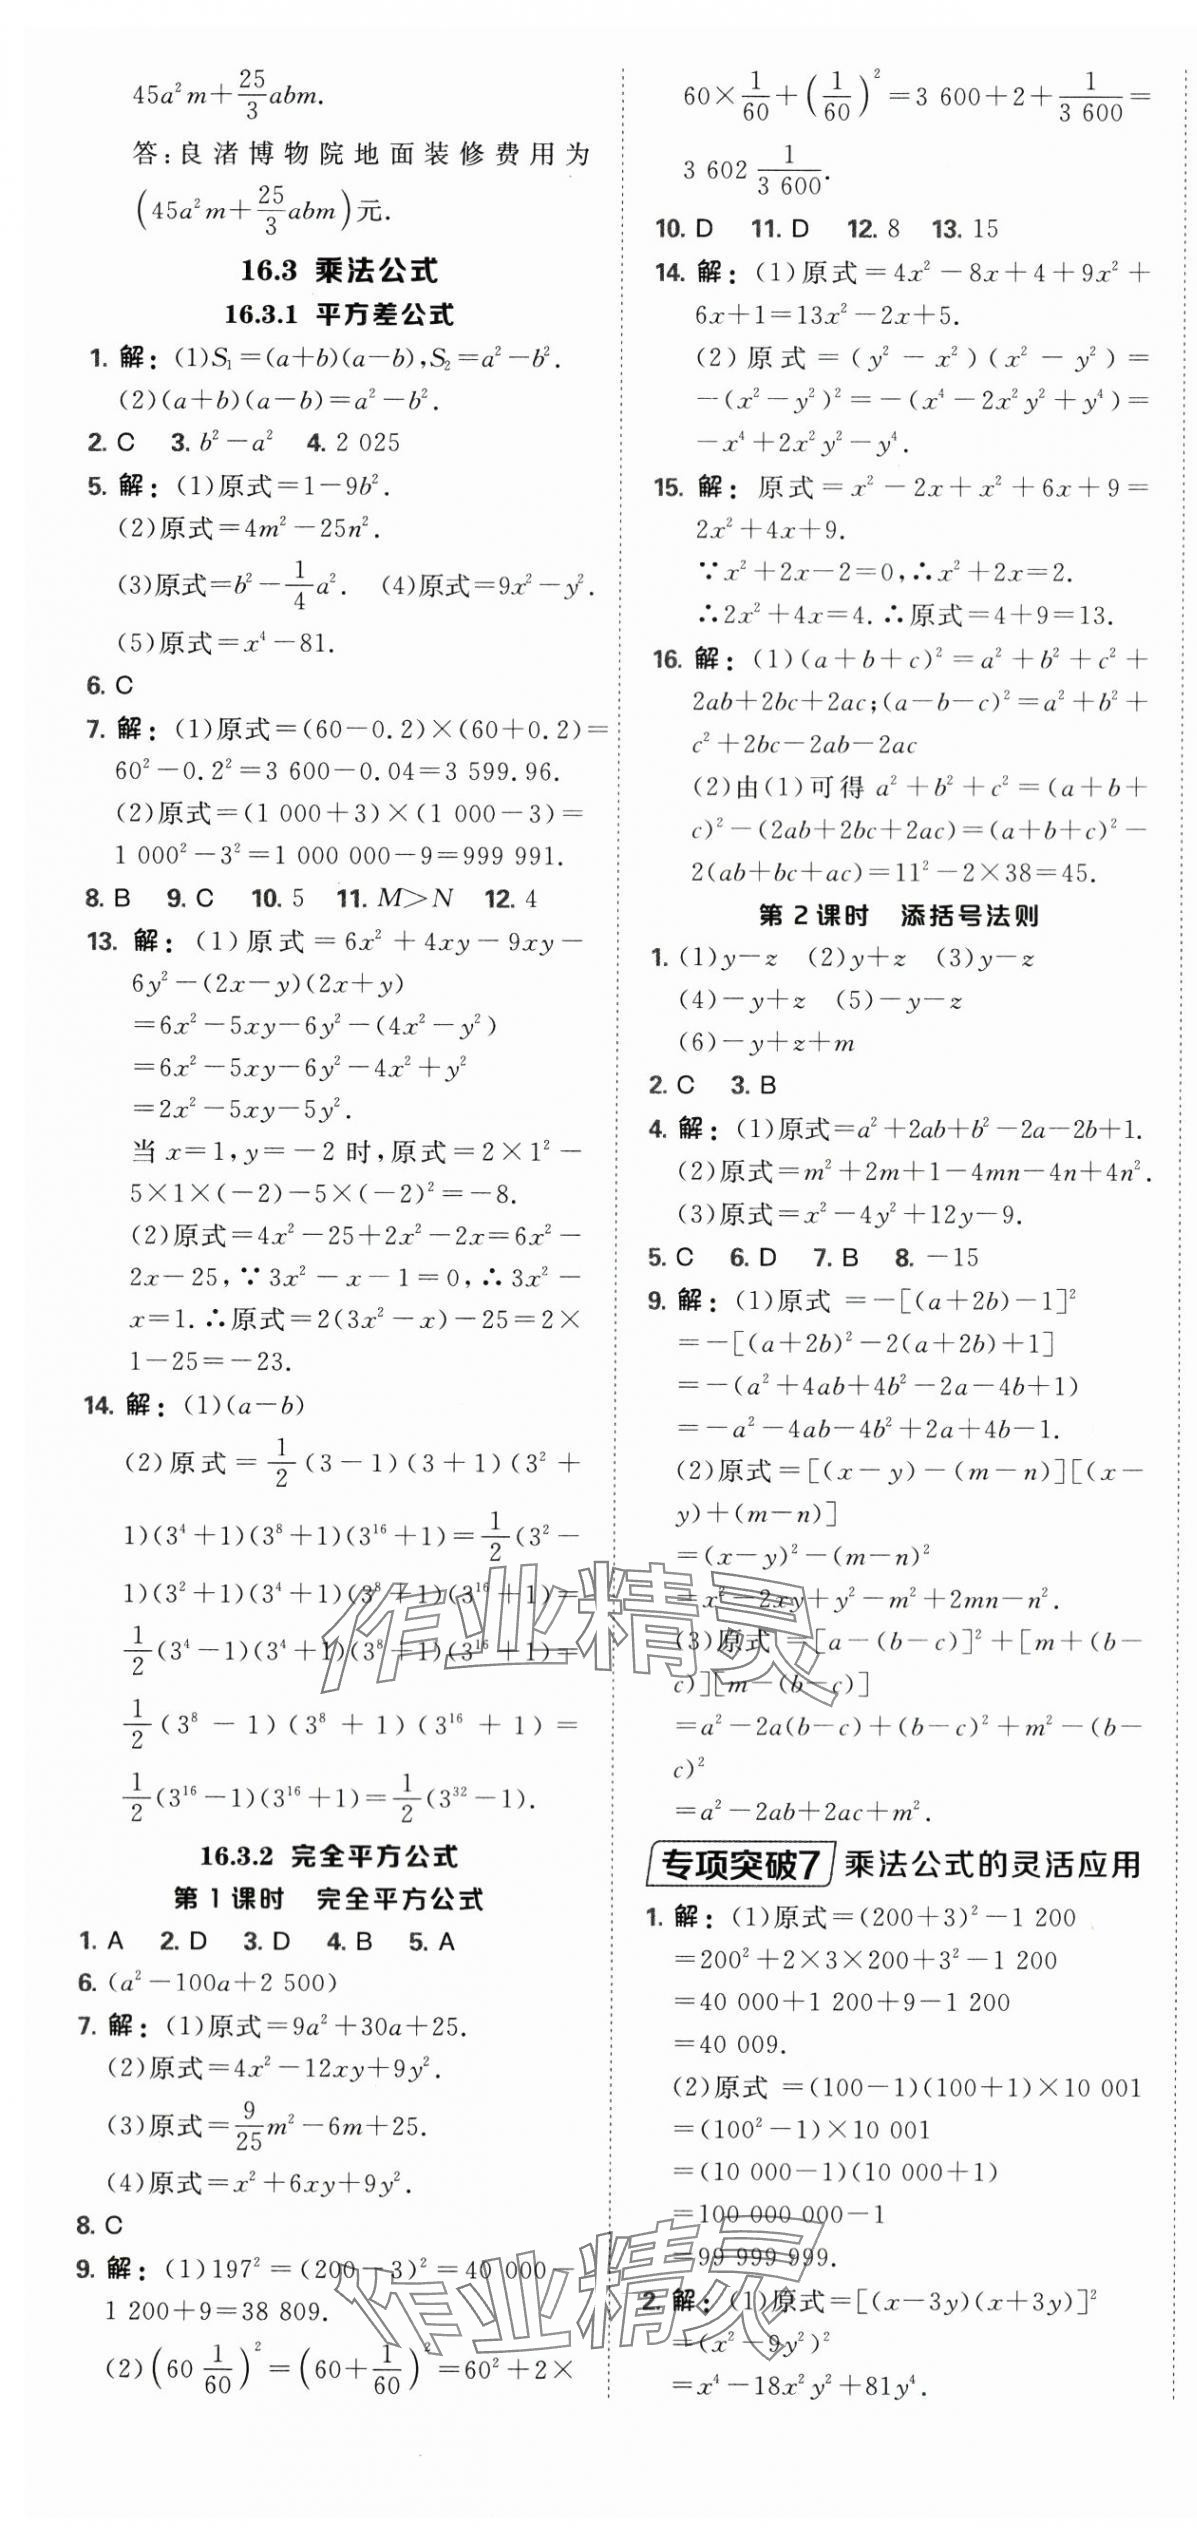 45a²m+25/3abm.
答:良渚博物院地面装修费用为
(45a²m+25/3abm)元.
16.3 乘法公式
16.3.1 平方差公式
1. 解:(1)S₁=(a+b)(a-b),S₂=a²-b².
(2)(a+b)(a-b)=a²-b².
2. C 3. b²-a² 4. 2 025
5. 解:(1)原式=1-9b².
(2)原式=4m²-25n².
(3)原式=b²-1/4a². (4)原式=9x²-y².
(5)原式=x⁴-81.
6. C
7. 解:(1)原式=(60-0.2)×(60+0.2)=
60²-0.2²=3 600-0.04=3 599.96.
(2)原式=(1 000+3)×(1 000-3)=
1 000²-3²=1 000 000-9=999 991.
8. B 9. C 10. 5 11. M>N 12. 4
13. 解:(1)原式=6x²+4xy-9xy-
6y²-(2x-y)(2x+y)
=6x²-5xy-6y²-(4x²-y²)
=6x²-5xy-6y²-4x²+y²
=2x²-5xy-5y².
当x=1,y=-2时,原式=2×1²-
5×1×(-2)-5×(-2)²=-8.
(2)原式=4x²-25+2x²-2x=6x²-
2x-25,∵3x²-x-1=0,∴3x²-
x=1.∴原式=2(3x²-x)-25=2×
1-25=-23.
14. 解:(1)(a-b)
(2)原式=1/2(3-1)(3+1)(3²+
1)(3⁴+1)(3⁸+1)(3¹⁶+1)=1/2(3²-
1)(3²+1)(3⁴+1)(3⁸+1)(3¹⁶+1)=
1/2(3⁴-1)(3⁴+1)(3⁸+1)(3¹⁶+1)=
1/2(3⁸-1)(3⁸+1)(3¹⁶+1)=
1/2(3¹⁶-1)(3¹⁶+1)=1/2(3³²-1).
16.3.2 完全平方公式
第1课时 完全平方公式
1. A 2. D 3. D 4. B 5. A
6. (a²-100a+2 500)
7. 解:(1)原式=9a²+30a+25.
(2)原式=4x²-12xy+9y².
(3)原式=9/25m²-6m+25.
(4)原式=x²+6xy+9y².
8. C
9. 解:(1)197²=(200-3)²=40 000-
1 200+9=38 809.
(2)(60 1/60)²=(60+1/60)²=60²+2×
60×1/60+(1/60)²=3 600+2+1/3 600=
3 602 1/3 600.
10. D 11. D 12. 8 13. 15
14. 解:(1)原式=4x²-8x+4+9x²+
6x+1=13x²-2x+5.
(2)原式=(y²-x²)(x²-y²)=
-(x²-y²)²=-(x⁴-2x²y²+y⁴)=
-x⁴+2x²y²-y⁴.
15. 解:原式=x²-2x+x²+6x+9=
2x²+4x+9.
∵x²+2x-2=0,∴x²+2x=2.
∴2x²+4x=4.∴原式=4+9=13.
16. 解:(1)(a+b+c)²=a²+b²+c²+
2ab+2bc+2ac;(a-b-c)²=a²+b²+
c²+2bc-2ab-2ac
(2)由(1)可得a²+b²+c²=(a+b+
c)²-(2ab+2bc+2ac)=(a+b+c)²-
2(ab+bc+ac)=11²-2×38=45.
第2课时 添括号法则
1. (1)y-z (2)y+z (3)y-z
(4)-y+z (5)-y-z
(6)-y+z+m
2. C 3. B
4. 解:(1)原式=a²+2ab+b²-2a-2b+1.
(2)原式=m²+2m+1-4mn-4n+4n².
(3)原式=x²-4y²+12y-9.
5. C 6. D 7. B 8. -15
9. 解:(1)原式=-[(a+2b)-1]²
=-[(a+2b)²-2(a+2b)+1]
=-(a²+4ab+4b²-2a-4b+1)
=-a²-4ab-4b²+2a+4b-1.
(2)原式=[(x-y)-(m-n)][(x-
y)+(m-n)]
=(x-y)²-(m-n)²
=x²-2xy+y²-m²+2mn-n².
(3)原式=[a-(b-c)]²+[m+(b-
c)][m-(b-c)]
=a²-2a(b-c)+(b-c)²+m²-(b-
c)²
=a²-2ab+2ac+m².
专项突破7 乘法公式的灵活应用
1. 解:(1)原式=(200+3)²-1 200
=200²+2×3×200+3²-1 200
=40 000+1 200+9-1 200
=40 009.
(2)原式=(100-1)(100+1)×10 001
=(100²-1)×10 001
=(10 000-1)(10 000+1)
=100 000 000-1
=99 999 999.
2. 解:(1)原式=[(x-3y)(x+3y)]²
=(x²-9y²)²
=x⁴-18x²y²+81y⁴.
作业精灵
作业精灵